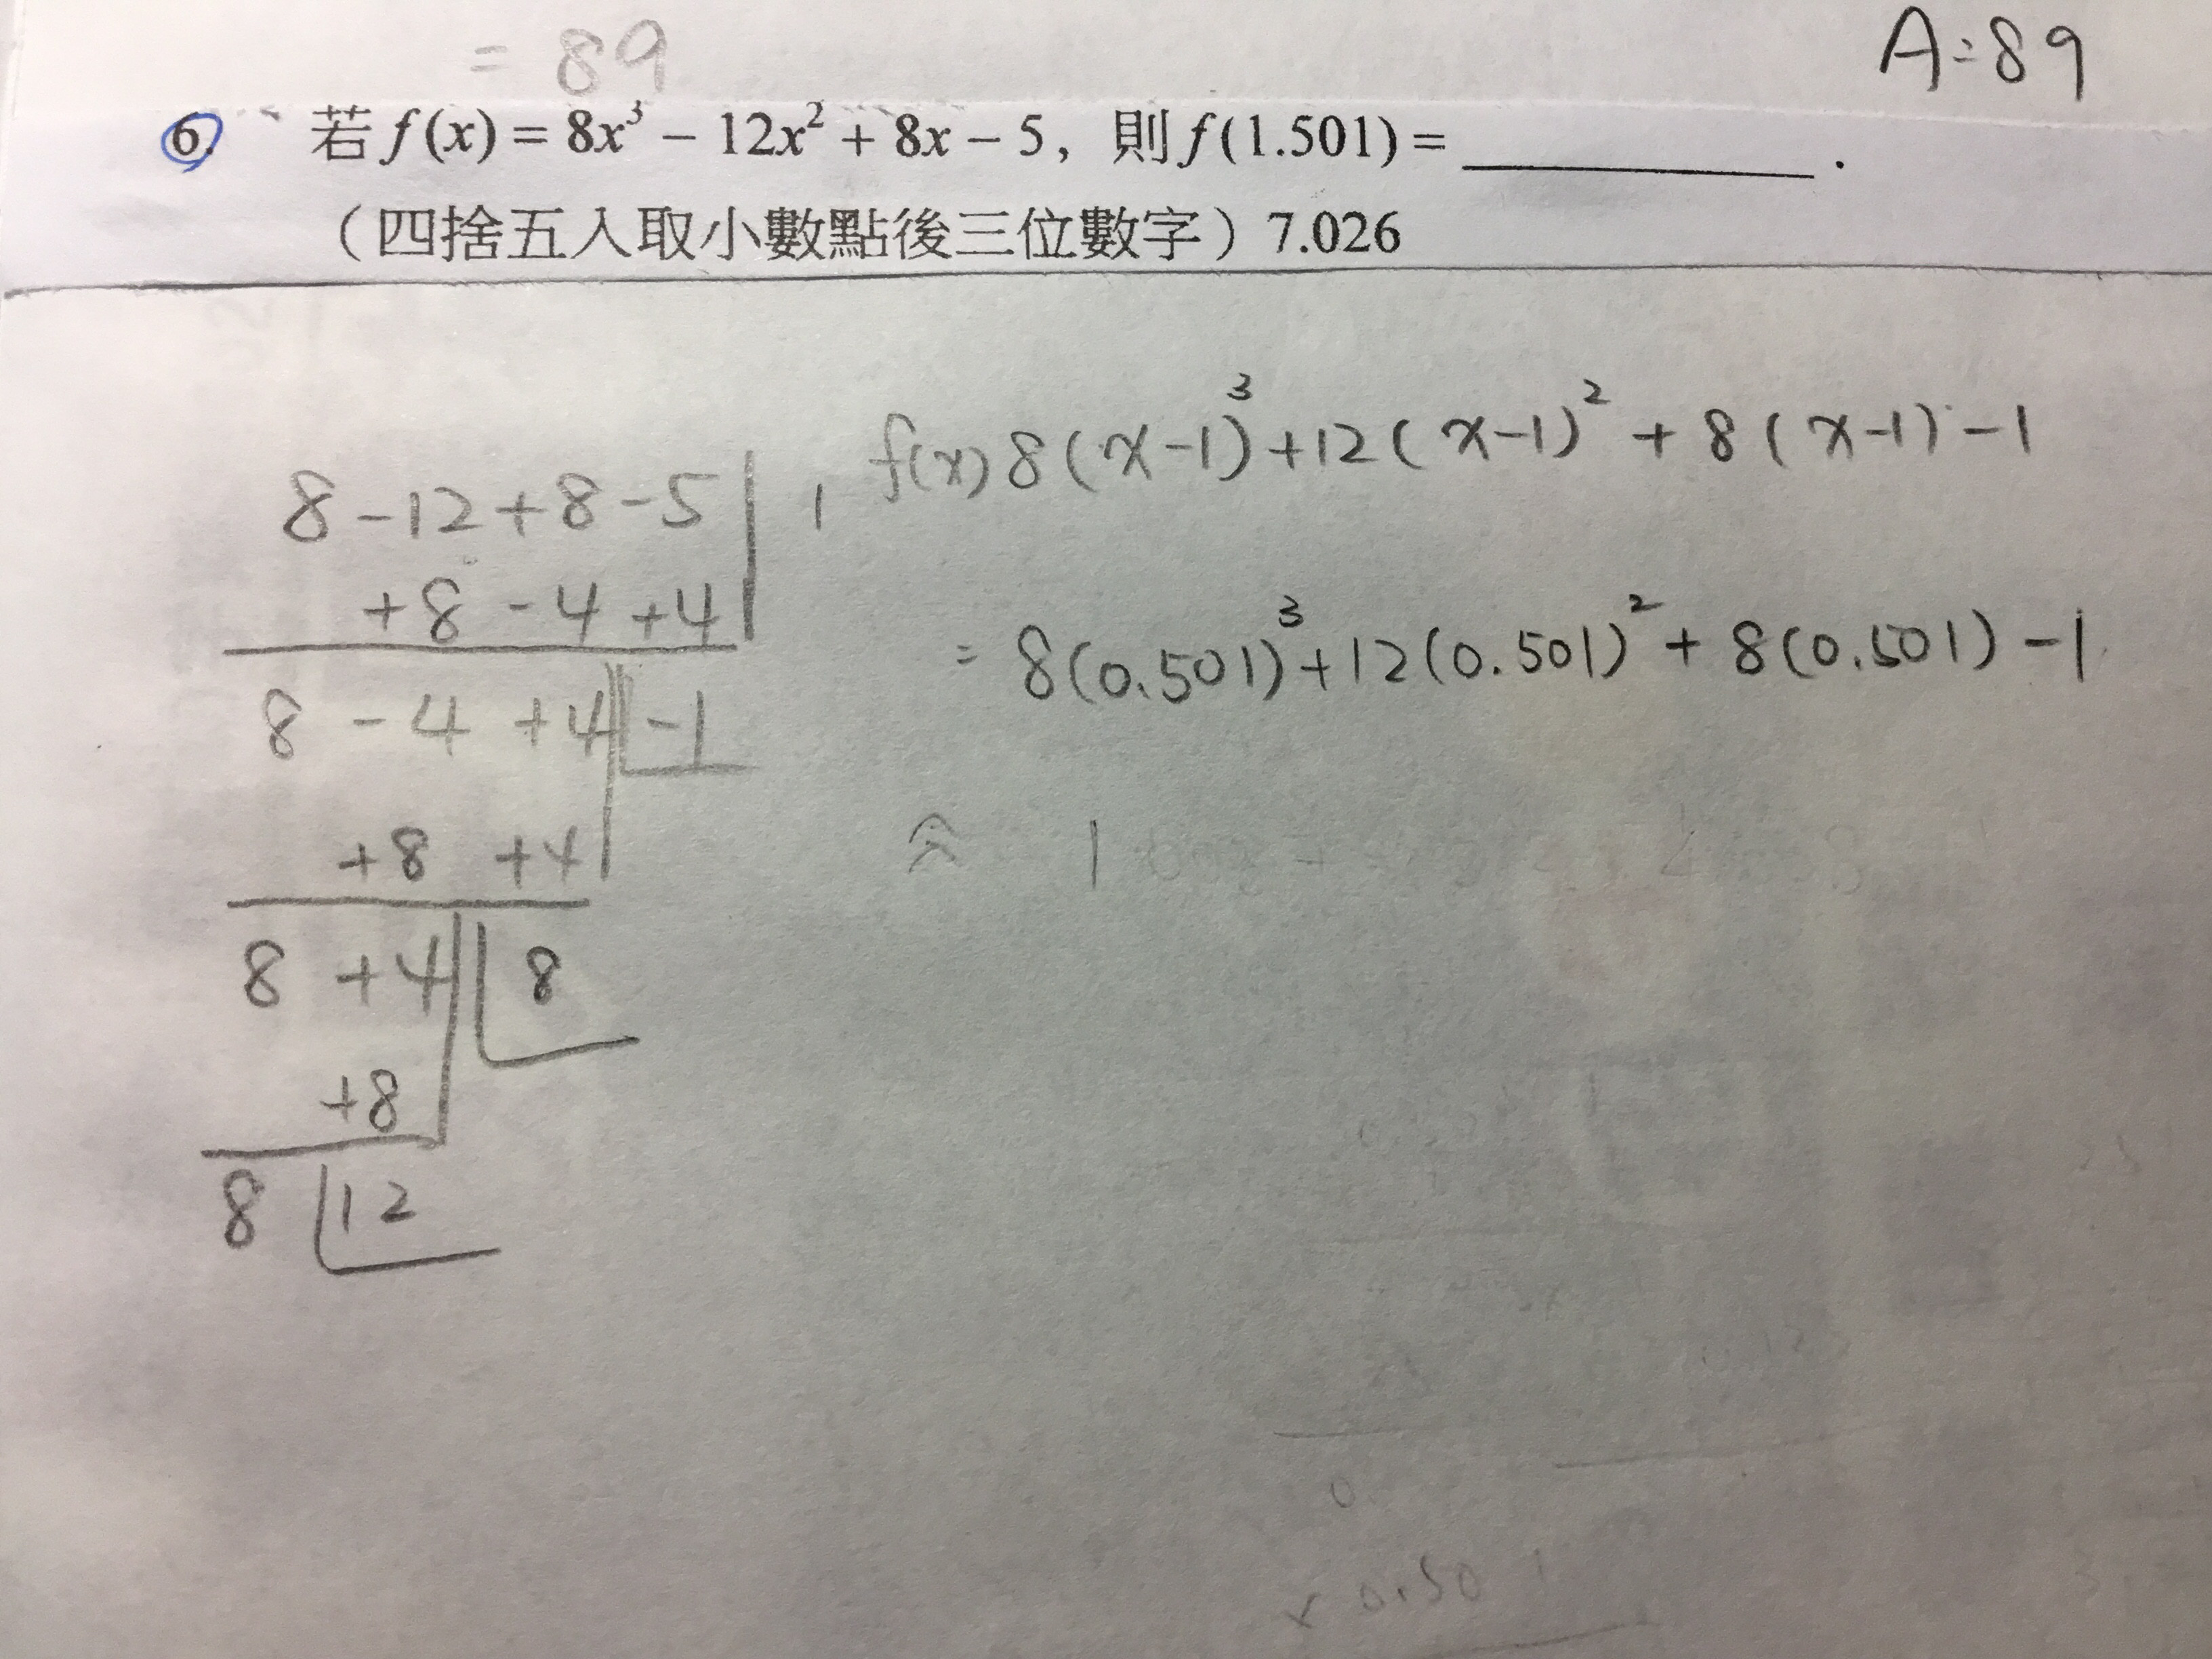 = 89
A=89
6. 若 f(x) = 8x³ − 12x² + 8x − 5, 則 f(1.501) = ________.
(四捨五入取小數點後三位數字) 7.026
f(x) 8(x-1)³+12(x-1)²+8(x-1)-1
= 8(0.501)³+12(0.501)²+8(0.501)-1
≈ 1
8-12+8-5 | 1
+8 -4 +4
8 -4 +4 | -1
+8 +4
8 +4 | 8
+8
8 | 12
× 0.501